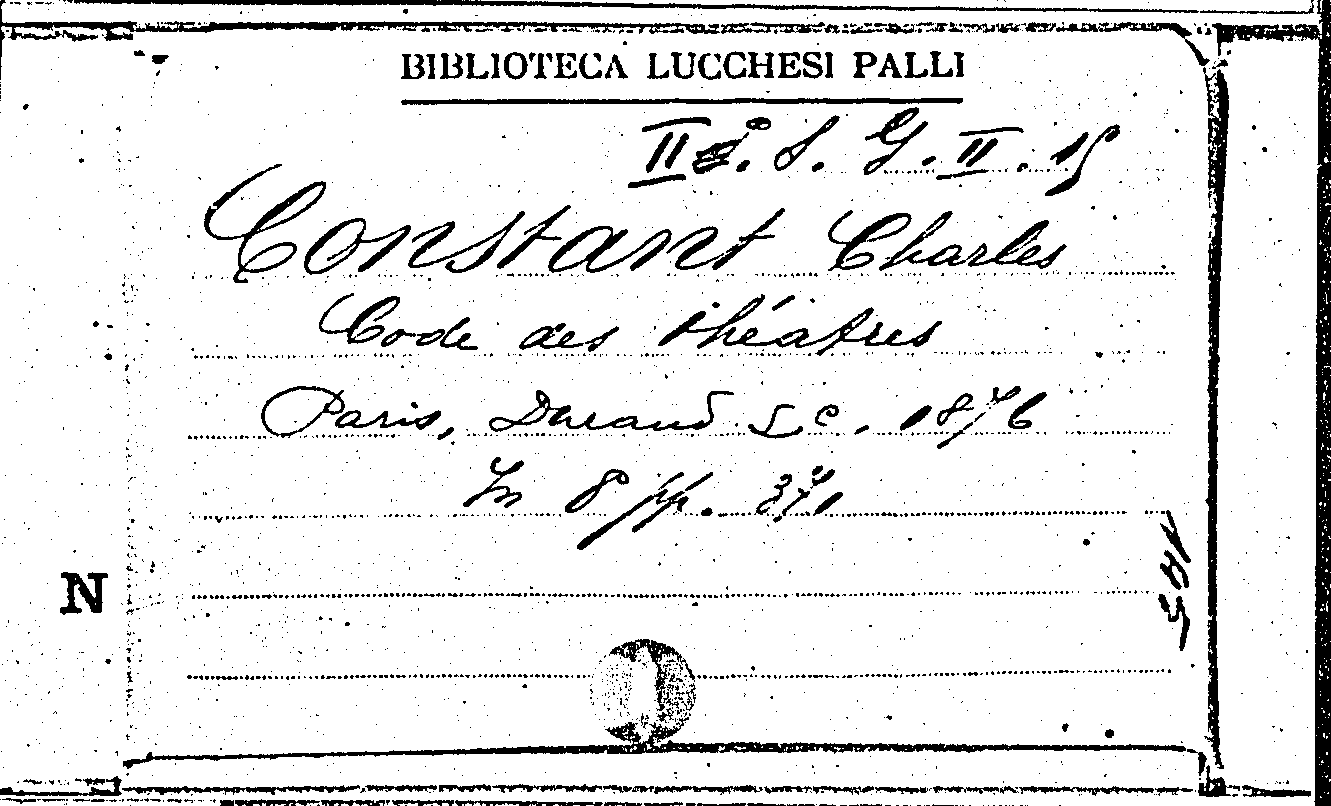 BIBLIOTECA LUCCHESI PALLI
II S. G. II. 15
Constant Charles
Code des théatres
Paris, Durand 1876
In 8 pp. 371
N